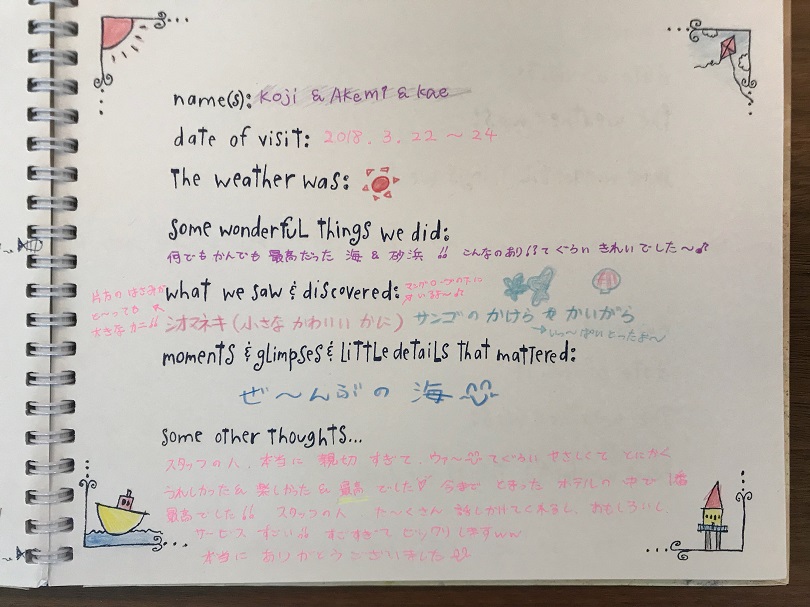 name(s): Koji & Akemi & kae
date of visit: 2018. 3. 22 ～ 24
The weather was:
some wonderful things we did:
何でもかんでも 最高だった 海 & 砂浜 !! こんなのあり!?ってぐらい きれいでした～♪
what we saw & discovered:
マングローブの下に
片方の はさみが
と～っても 大
大きな カニ!!
シオマネキ (小さな かわいい かに) サンゴの かけら & かいがら
→いっ～ぱい とったよ～
moments & glimpses & little details that mattered:
ぜ～んぶの 海
some other thoughts...
スタッフの人、本当に 親切 すぎて、ウァ～ てぐらい やさしくて とにかく
うれしかった & 楽しかった & 最高 でした♡ 今まで とまった ホテルの 中で 1番
最高でした!! スタッフの人 た～くさん 話しかけてくれるし、おもしろいし、
サービス すごい!! すごすぎて ビックリ しますww
本当に ありがとうございました